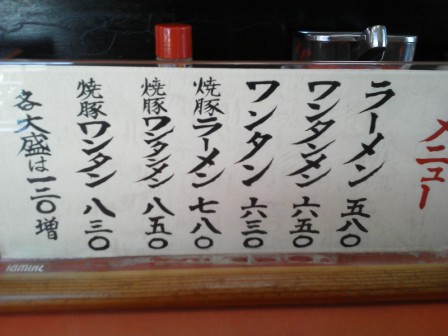 メニュー
ラーメン 五八〇
ワンタンメン 六五〇
ワンタン 六三〇
焼豚ラーメン 七八〇
焼豚ワンタンメン 八五〇
焼豚ワンタン 八三〇
各大盛は一二〇増